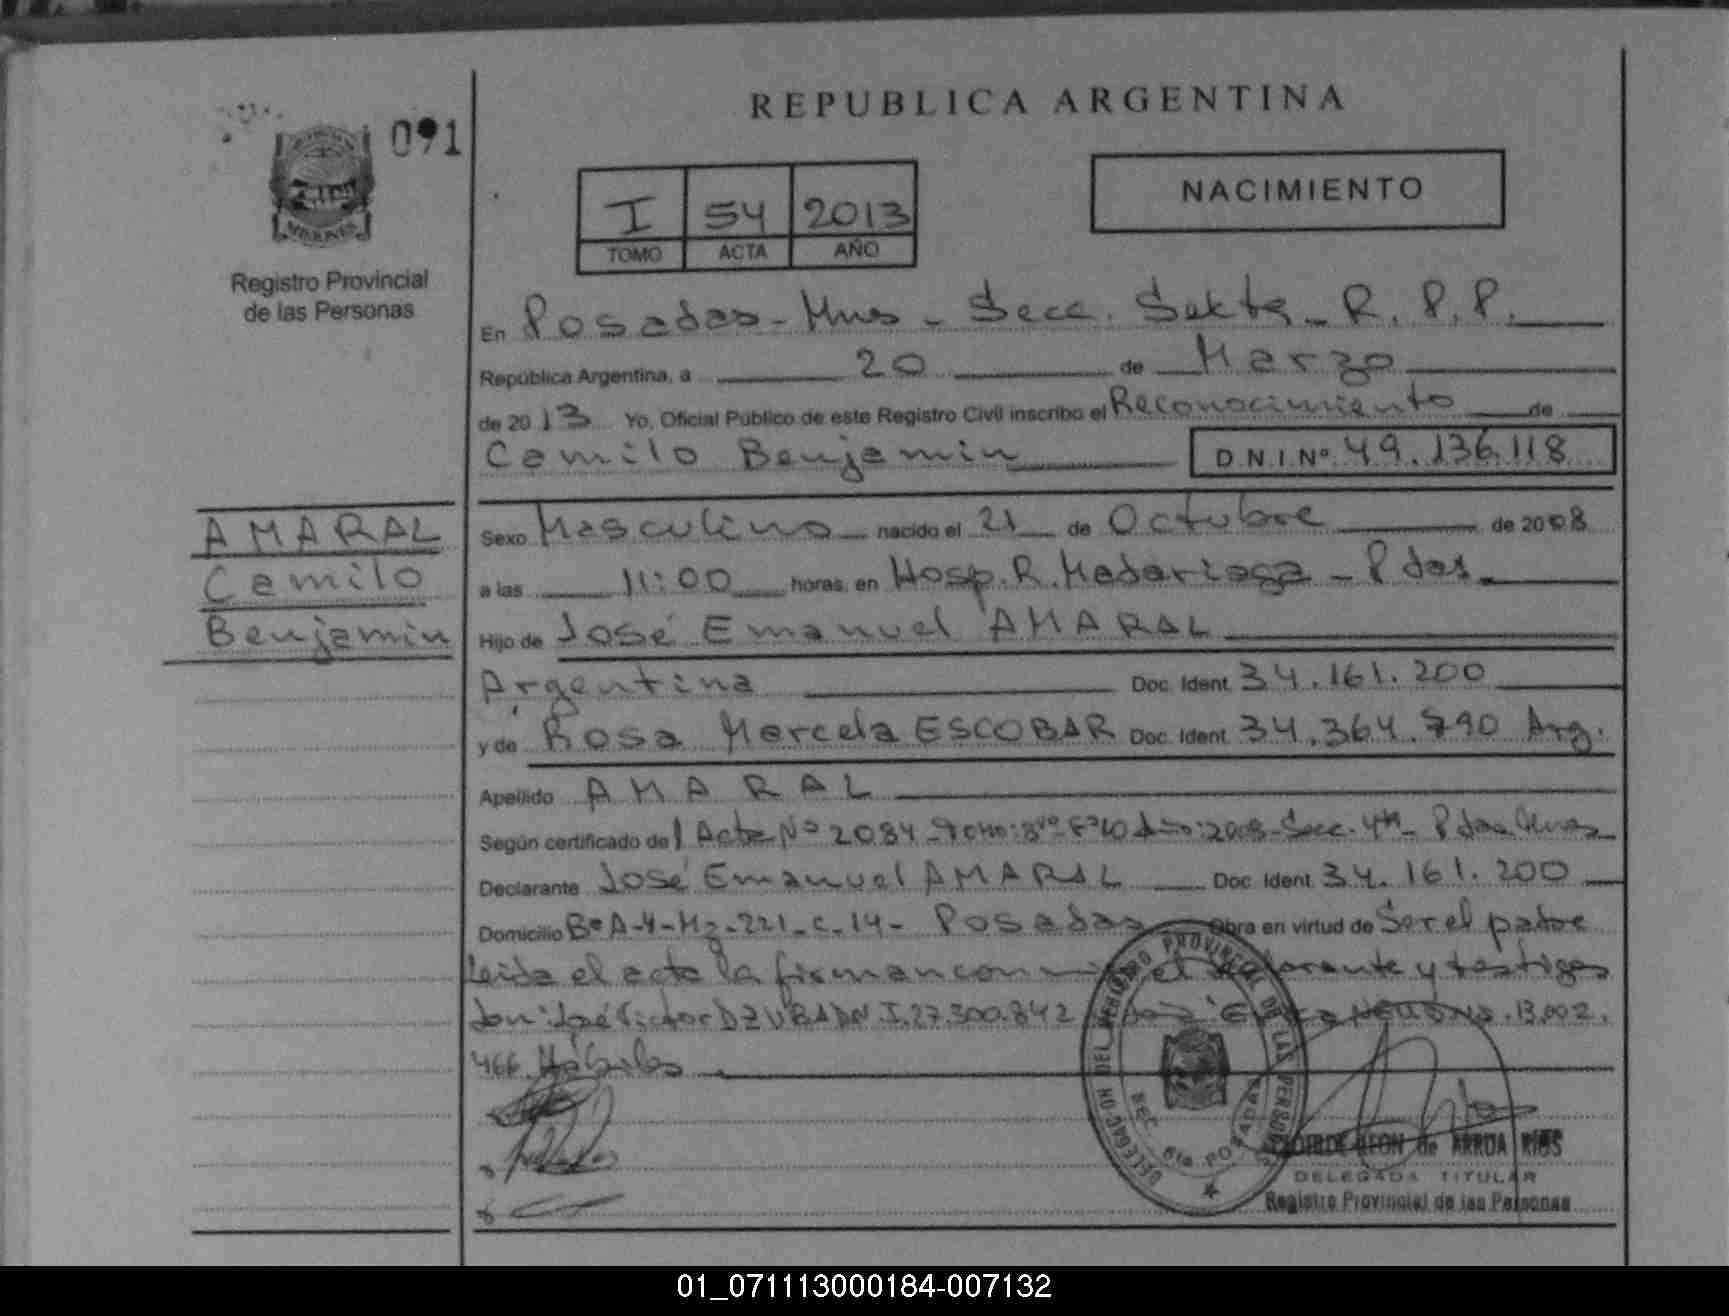 091
REPUBLICA ARGENTINA
NACIMIENTO
I 54 2013
TOMO ACTA AÑO
Registro Provincial
de las Personas
En Posadas - Mnes - Secc. Sexta - R. P. P.
República Argentina, a 20 de Marzo
de 2013 Yo, Oficial Público de este Registro Civil inscribo el Reconocimiento de
Camilo Benjamin D.N.I.Nº 49.136.118
AMARAL
Camilo
Benjamin
Sexo Masculino nacido el 21 de Octubre de 2008
a las 11:00 horas, en Hosp. R. Madariaga - Pdas.
Hijo de José Emanuel AMARAL
Argentina Doc. Ident. 34.161.200
y de Rosa Marcela ESCOBAR Doc. Ident. 34.364.790 Arg.
Apellido AMARAL
Según certificado de Acta Nº 2084 - Tomo: Año: 2008 - Secc. 4ta - Pdas
Declarante José Emanuel AMARAL Doc. Ident. 34.161.200
Domicilio Bº A-4-Mz-221-C-14- Posadas Obra en virtud de Ser el padre
Leida el acta la firman con el y testigos
José Victor I. 27.300.842 13.002.
466 Hábiles
DELEGACION DEL REGISTRO PROVINCIAL DE LAS PERSONAS
SEC. 6ta POSADAS
de ARRUA RIOS
DELEGADA TITULAR
Registro Provincial de las Personas
01_071113000184-007132